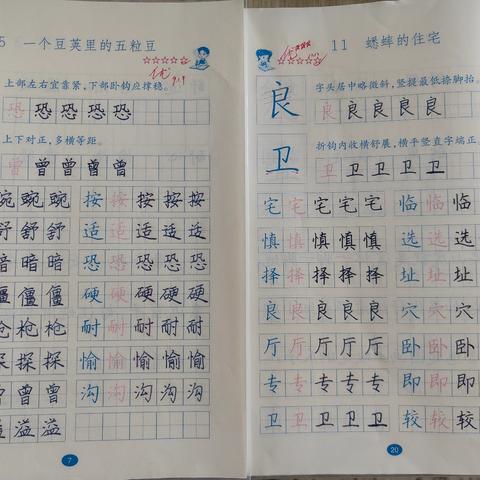 5 一个豆荚里的五粒豆
优
上部左右宜靠紧，下部卧钩应撑稳。
恐 恐 恐 恐 恐
上下对正，多横等距。
曾 曾 曾 曾 曾
豌 豌 豌 按 按 按 按 按
舒 舒 舒 适 适 适 适 适
暗 暗 暗 恐 恐 恐 恐 恐
僵 僵 僵 硬 硬 硬 硬 硬
枪 枪 枪 耐 耐 耐 耐 耐
探 探 探 愉 愉 愉 愉 愉
曾 曾 曾 沟 沟 沟 沟 沟
溢 溢 溢
7
11 蟋蟀的住宅
优
良
字头居中略微斜，竖提最低捺脚抬。
良 良 良 良 良
卫
折钩内收横舒展，横平竖直字端正。
卫 卫 卫 卫 卫
宅 宅 宅 宅 宅 临 临 临
慎 慎 慎 慎 慎 选 选 选
择 择 择 择 择 址 址 址
良 良 良 良 良 穴 穴 穴
厅 厅 厅 厅 厅 卧 卧 卧
专 专 专 专 专 即 即 即
卫 卫 卫 卫 卫 较 较 较
20